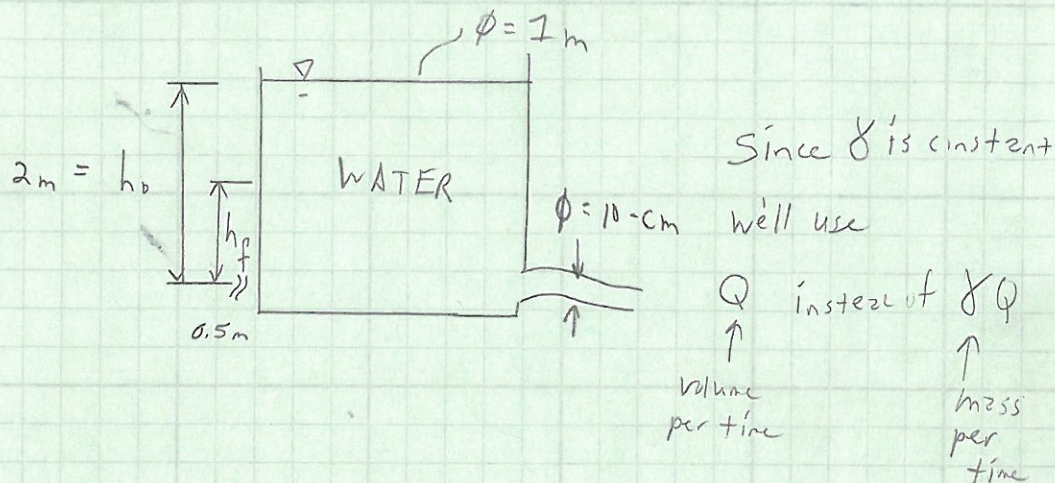 ϕ = 1 m
2 m = h₀
h_f
0.5 m
WATER
ϕ = 10-cm
Since γ is cinstant
we'll use
Q instead of γQ
volume
per time
mass
per
time